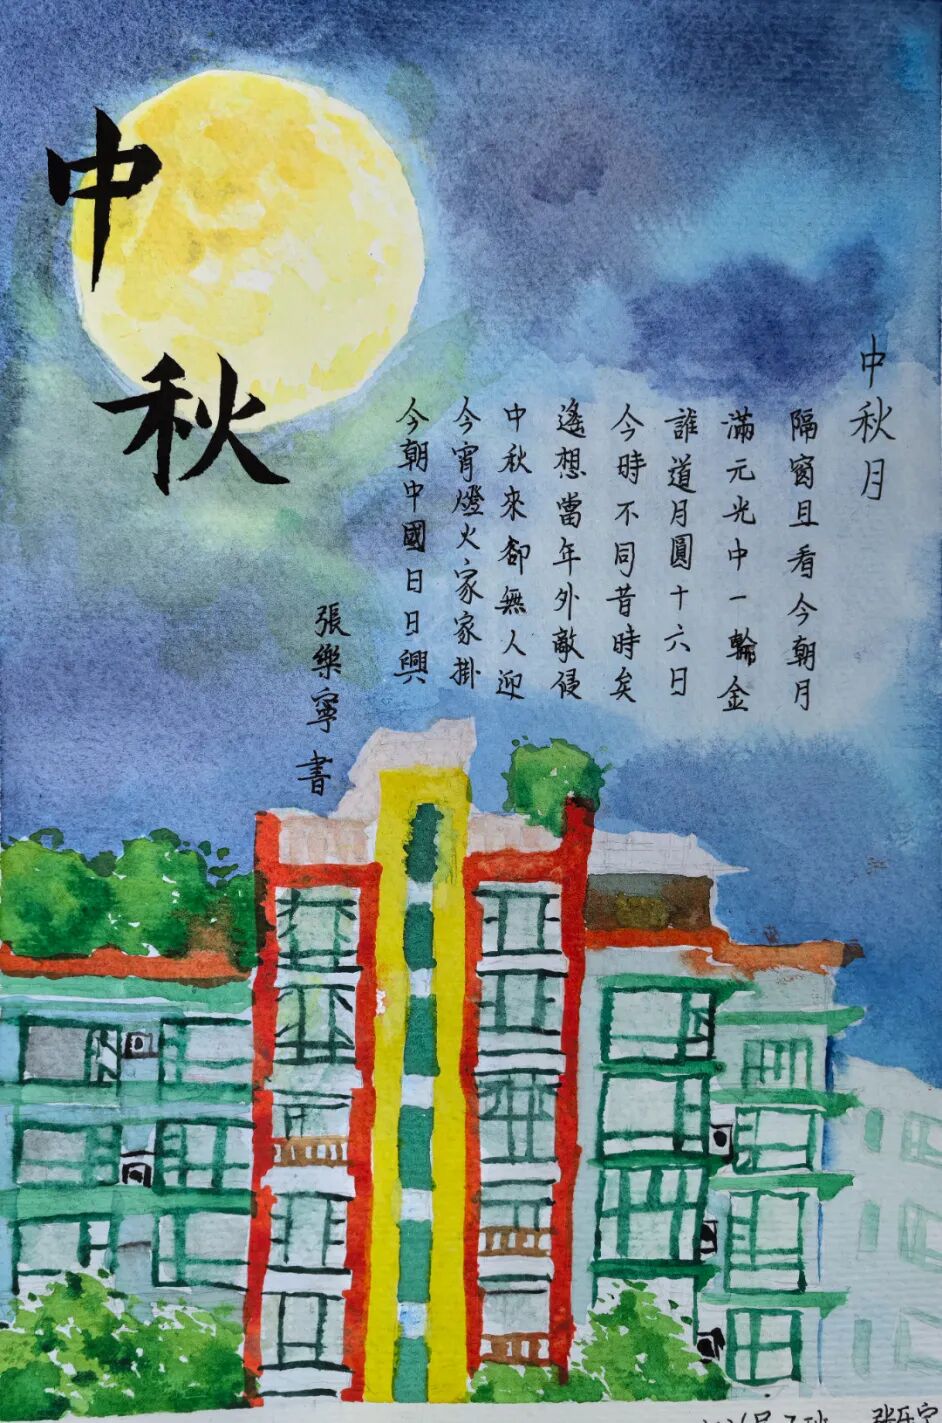 中秋
中秋月
隔窗且看今朝月
滿元光中一輪金
誰道月圓十六日
今時不同昔時矣
遙想當年外敵侵
中秋來卻無人迎
今宵燈火家家掛
今朝中國日日興
張樂寧書